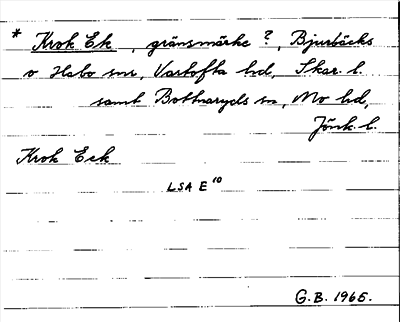 * Krok Ek, gränsmärke ?, Bjurbäcks
o Habo snr, Vartofta hd, Skar. l.
samt Bottnaryds sn, Mo hd,
Jönk. l.
Krok Eek
LSA E¹⁰
G.B. 1965.